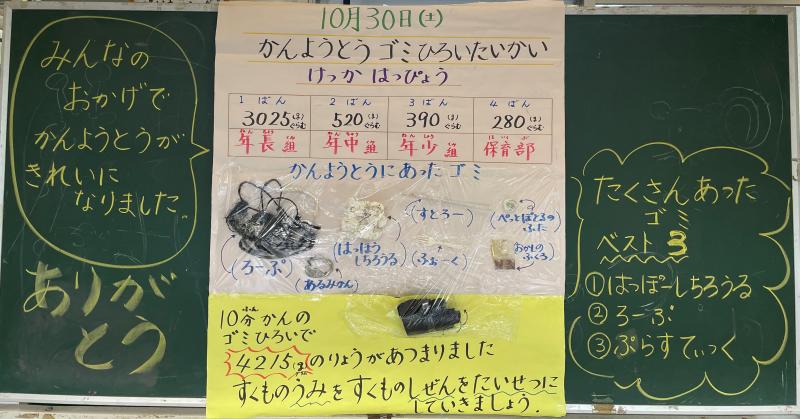 みんなの
おかげで
かんようとうが
きれいに
なりました
ありが
とう
10月30日(土)
かんようとうゴミひろいたいかい
けっか はっぴょう
1 ばん
3025(g)ぐらむ
年長組
ねんちょうくみ
2 ばん
520(g)ぐらむ
年中組
3 ばん
390(g)ぐらむ
年少組
4 ばん
280(g)ぐらむ
保育部
ほいくぶ
かんようとうにあったゴミ
(ろーぷ)
(あるみかん)
(はっぽう
しちろうる)
(すとろー)
(ふぉーく)
(ぺっとぼとるの
ふた)
(おかしの
ふくろ)
10分かんの
ふん
ゴミひろいで
4215(g)のりょうがあつまりました
すくものうみをすくものしぜんをたいせつに
していきましょう.
たくさんあった
ゴミ
ベスト3
①はっぽーしちろうる
②ろーぷ
③ぷらすてぃっく